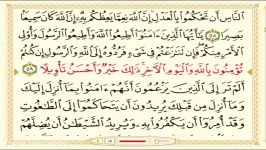 ٱلنَّاسِ أَن تَحْكُمُوا۟ بِٱلْعَدْلِ إِنَّ ٱللَّهَ نِعِمَّا يَعِظُكُم بِهِۦٓ إِنَّ ٱللَّهَ كَانَ سَمِيعًۢا
بَصِيرًا ٥٨ يَٰٓأَيُّهَا ٱلَّذِينَ ءَامَنُوٓا۟ أَطِيعُوا۟ ٱللَّهَ وَأَطِيعُوا۟ ٱلرَّسُولَ وَأُو۟لِى
ٱلْأَمْرِ مِنكُمْ فَإِن تَنَٰزَعْتُمْ فِى شَىْءٍ فَرُدُّوهُ إِلَى ٱللَّهِ وَٱلرَّسُولِ إِن كُنتُمْ
تُؤْمِنُونَ بِٱللَّهِ وَٱلْيَوْمِ ٱلْءَاخِرِ ذَٰلِكَ خَيْرٌ وَأَحْسَنُ تَأْوِيلًا
٥٩ أَلَمْ تَرَ إِلَى ٱلَّذِينَ يَزْعُمُونَ أَنَّهُمْ ءَامَنُوا۟ بِمَآ أُنزِلَ إِلَيْكَ
وَمَآ أُنزِلَ مِن قَبْلِكَ يُرِيدُونَ أَن يَتَحَاكَمُوٓا۟ إِلَى ٱلطَّٰغُوتِ
وَقَدْ أُمِرُوٓا۟ أَن يَكْفُرُوا۟ بِهِۦ وَيُرِيدُ ٱلشَّيْطَٰنُ أَن يُضِلَّهُمْ